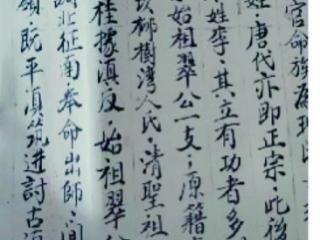 官命族為理
姓，唐代亦即正宗，此後
姓李，其立有功者多
始祖翠公一支，原籍
柳樹灣人民，清聖祖
桂據滇反 始祖翠公
北征南奉命出師，間
嶺，既平滇筑进討古